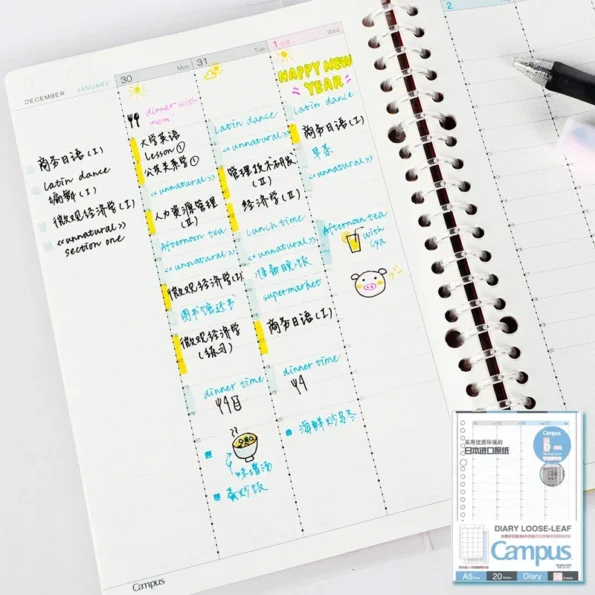 DECEMBER JANUARY
商务日语(I)
latin dance
编舞(I)
微观经济学(I)
«unnatural»
section one
30 Mon
dinner with
mom
大学英语
lesson ①
公共关系学①
«unnatural»
人力资源管理
(II)
Afternoon tea
«unnatural»
微观经济学(I)
图书馆还书
微观经济学
(练习)
dinner time
味增汤
蛋炒饭
31 Tue
Latin dance
«unnatural»
管理技术研究
(II)
经济学(I)
Lunch time
«unnatural»
准备晚饭
supermarket
商务日语(I)
dinner time
海鲜炒乌冬
1
HAPPY NEW
YEAR
Latin dance
商务日语(I)
早茶
«unnatural»
Afternoon tea
with
Lya
2
Campus
Campus
采用优质环保的
日本进口原纸
DIARY LOOSE-LEAF
Campus
A5 20 Diary